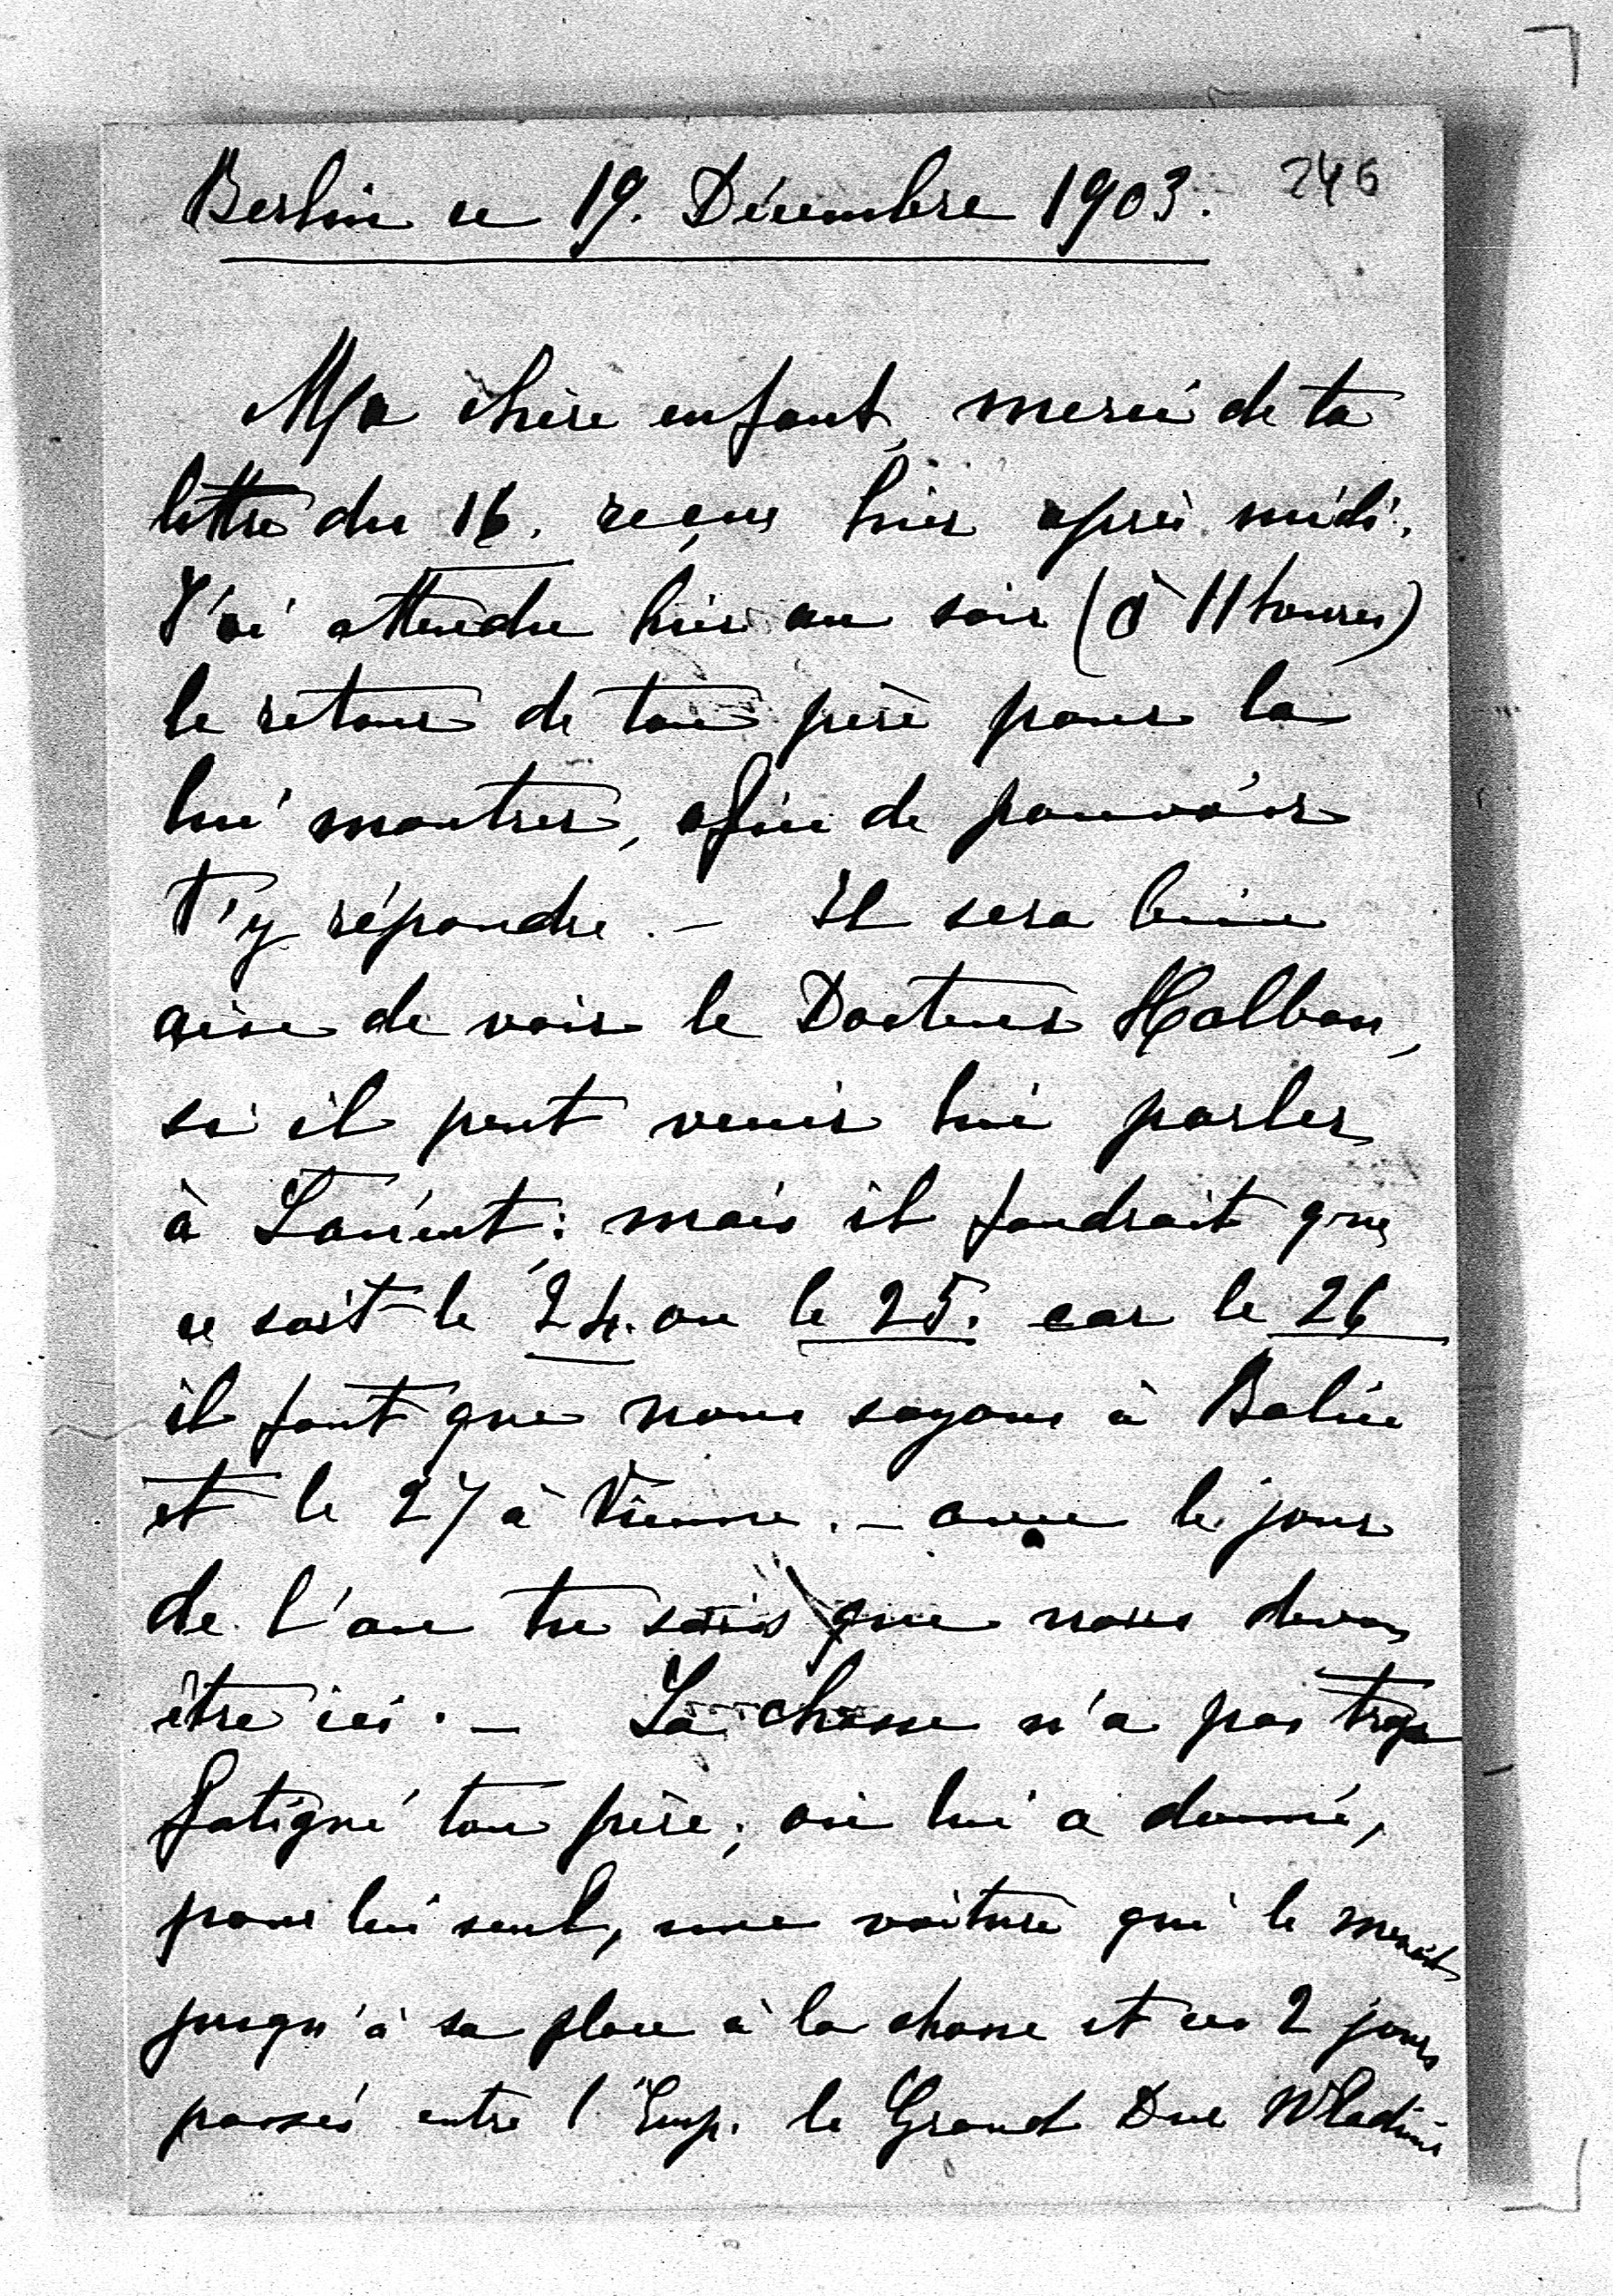 246
Berlin ce 19. Décembre 1903.
Ma chère enfant, merci de ta
lettre du 16. reçue hier après midi.
J'ai attendu hier au soir (à 11 heures)
le retour de ton père pour la
lui montrer, afin de pouvoir
t'y répondre. – Il sera bien
aise de voir le Docteur Halban,
si il peut venir lui parler
à Lancut; mais il faudrait que
ce soit le 24. ou le 25. car le 26
il faut que nous soyons à Balice
et le 27 à Vienne. – avec le jour
de l'an tu sais que nous devons
être ici. – La chasse n'a pas trop
fatigué ton père; on lui a donné,
pour lui seul, une voiture qui le menait
jusqu'à sa place à la chasse et ces 2 jours
passés entre l'Emp. le Grand Duc Wladimir